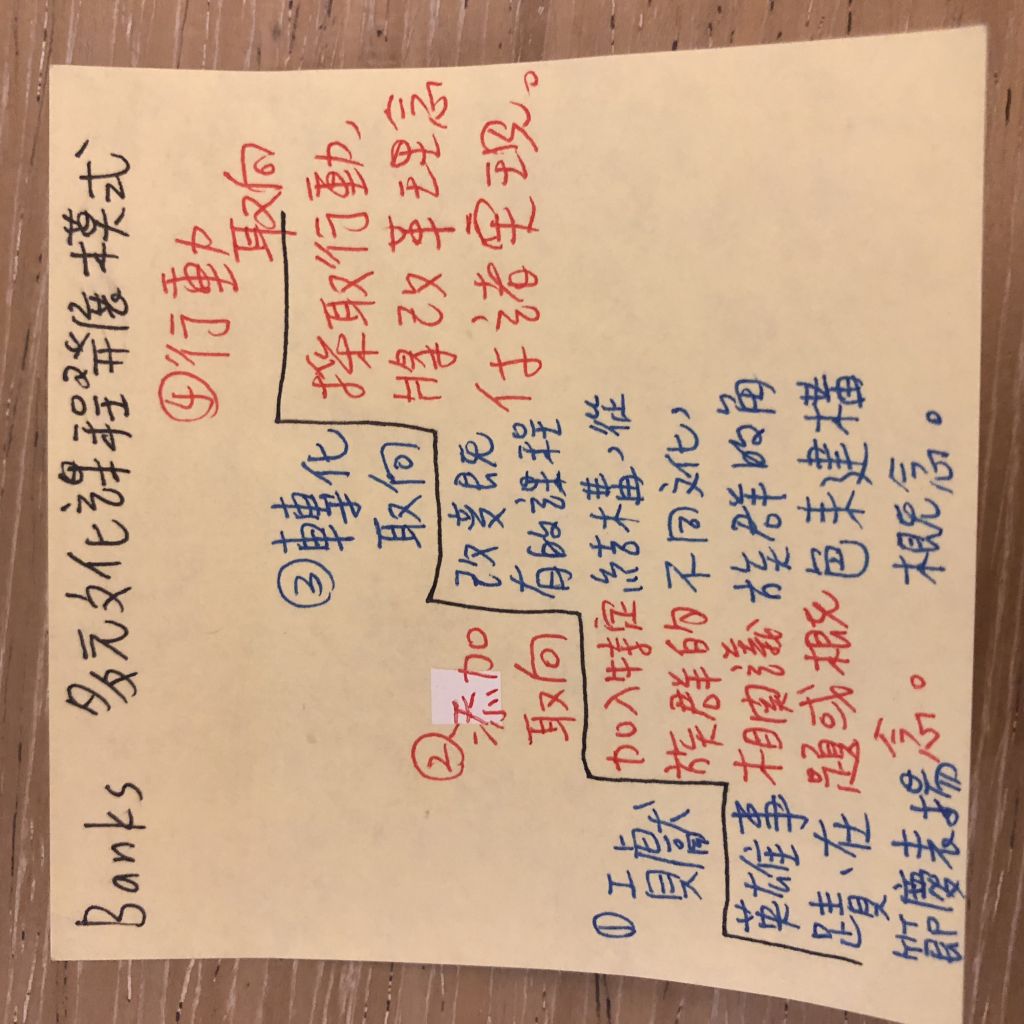 Banks 多元文化課程發展模式
④行動
取向
採取行動、
將改革理念
付諸實現。
③轉化
取向
改變既
有的課程
結構,從
不同文化,
族群的角
色來建構
概念。
②添加
取向
加入特定
族群的
相關議
題或概
念。
①貢獻
英雄事
蹟、在
節慶表揚